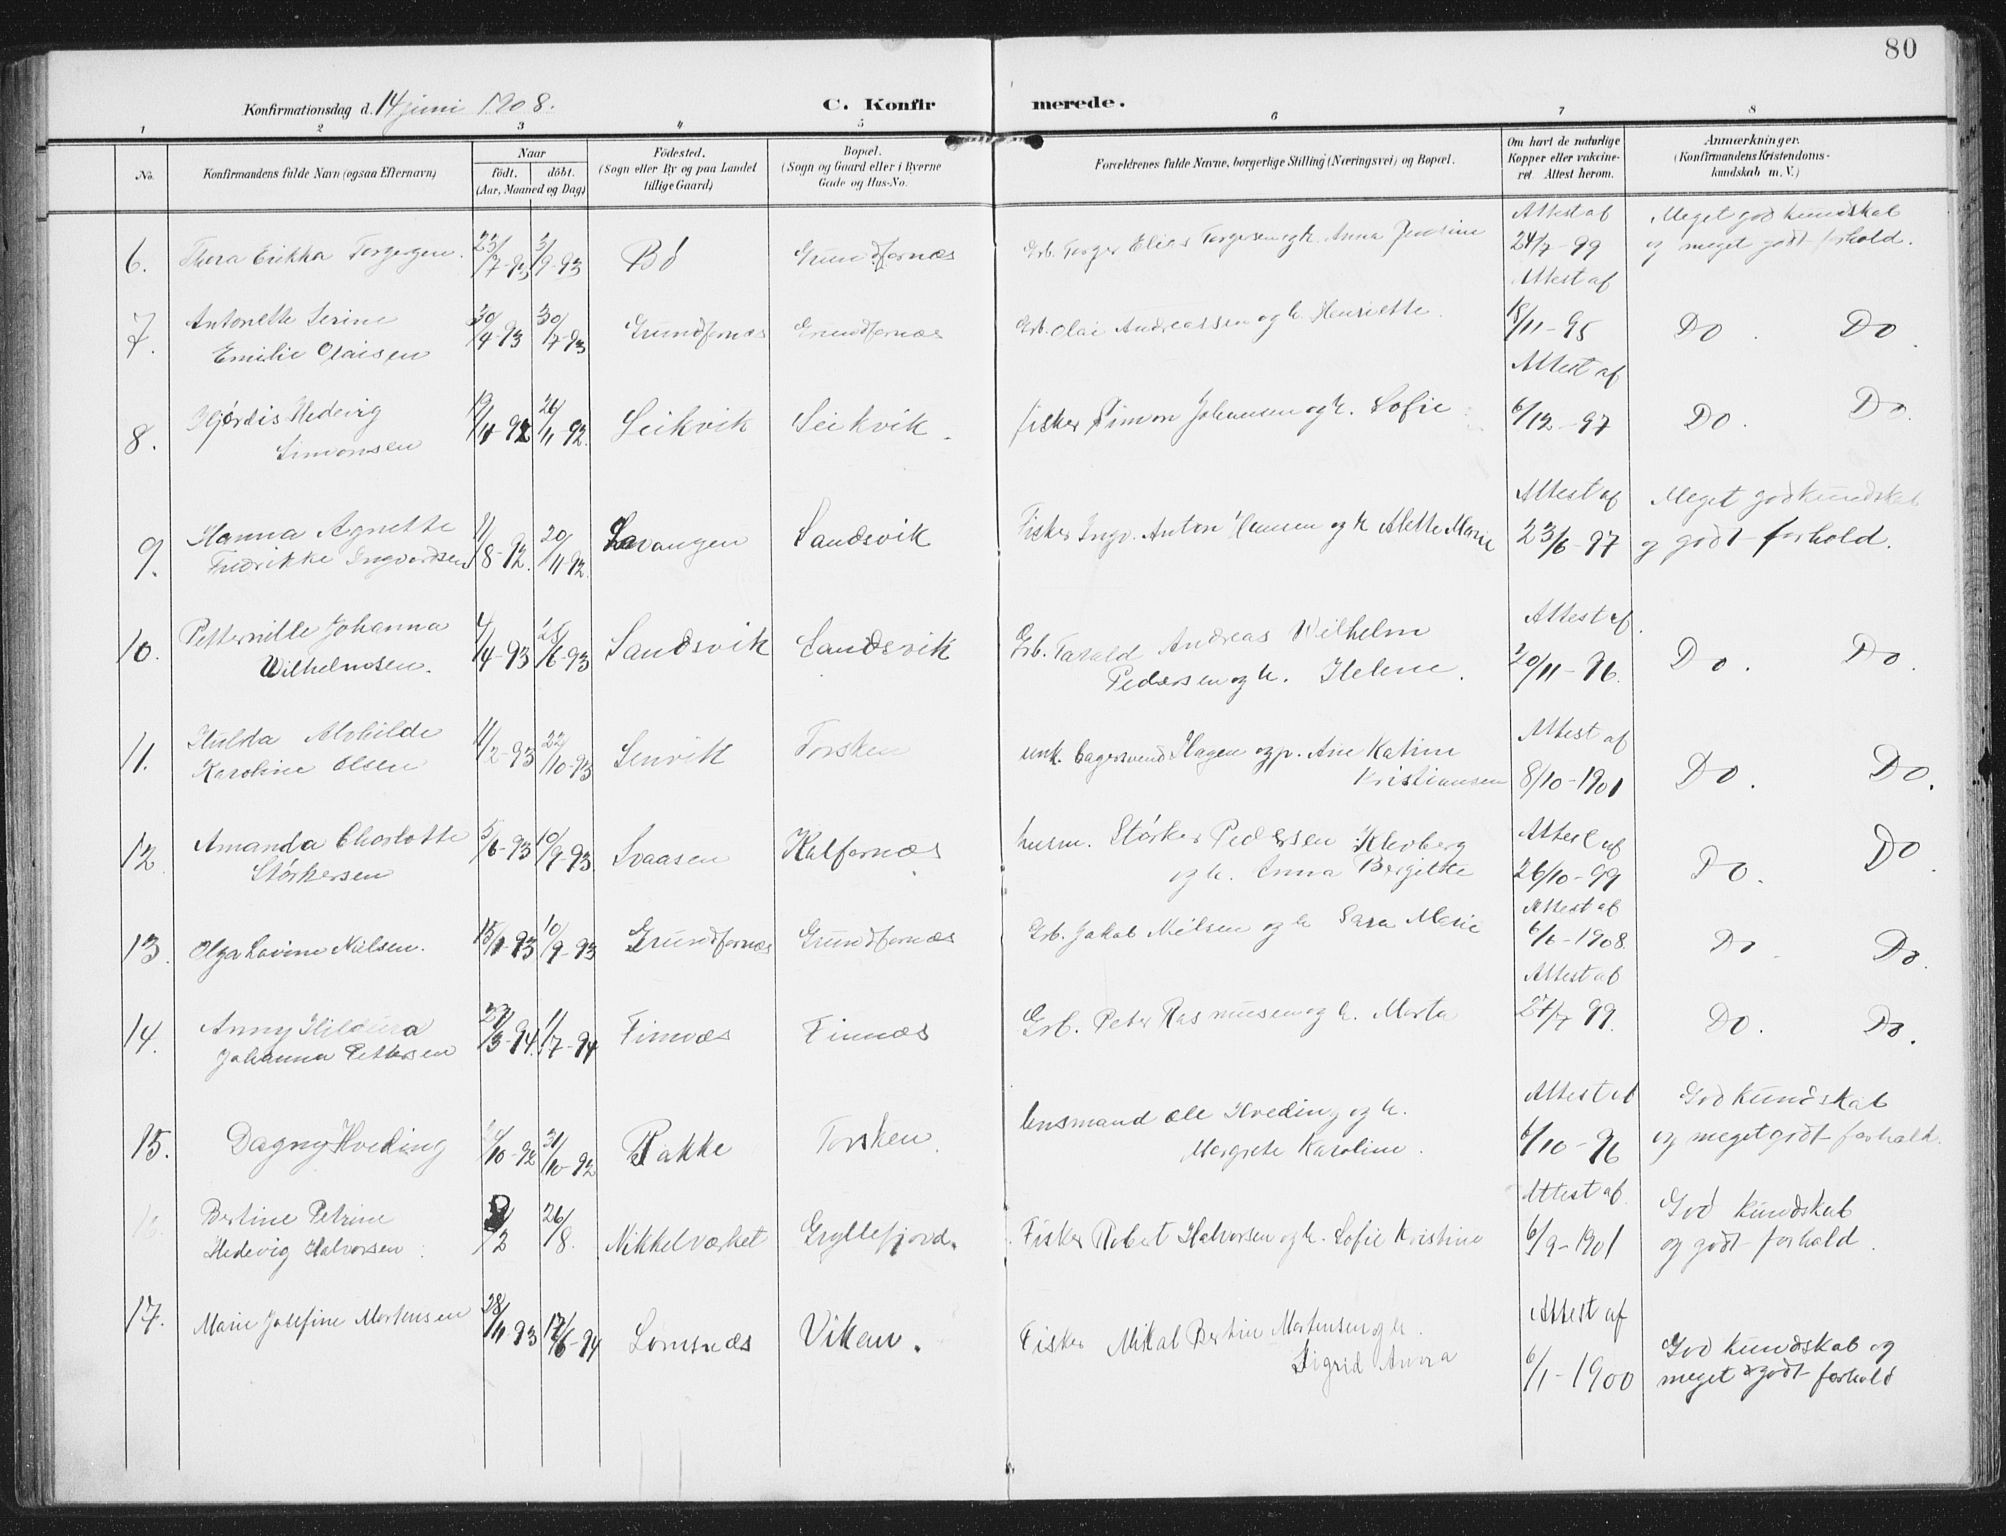 80
Konfirmationsdag d. 14 juni 1908.
C. Konfirmerede.
1 2 3 4 5 6 7 8
No.
Konfirmandens fulde Navn (ogsaa Efternavn)
Naar
födt. döbt.
(Aar, Maaned og Dag)
Födested.
(Sogn eller By og paa Landet
tillige Gaard)
Bopæl.
(Sogn og Gaard eller i Byerne
Gade og Hus-No.
Forældrenes fulde Navne, borgerlige Stilling (Næringsvei) og Bopæl.
Om havt de naturlige
Kopper eller vakcine-
ret. Attest herom.
Anmærkninger.
(Konfirmandens Kristendoms-
kundskab m. V.)
6. Thora Erikka Torgersen. 23/7-93 3/9-93 Bö Grundfornæs Grb. Torger Elias Torgersen og h. Anna Jensine Attest af 24/7-99 Meget god kundskab
og meget godt forhold.
7. Antonette Serine
Emilie Olaisen 30/4-93 30/7-93 Grundfornæs Grundfornæs Grb. Olai Andreassen og h. Henriette. Attest af 18/11-95 Do. Do.
8. Hjørdis Hedevig
Simonsen 92 26/11-92. Leikvik Leikvik. fisker Simon Johansen og h. Sofie Attest af 6/12-97 Do. Do.
9. Hanna Agnette
Fredrikke Ingvardsen 11/8-92. 20/11-92. Lavangen Sandsvik Fisker Ingv. Anton Hansen og h. Alette Marie Attest af 23/6-97 Meget god kundskab
og godt forhold.
10. Petternille Johanna
Wilhelmsen. 4/4-93 25/6-93 Sandsvik Sandsvik Grb. Tarald Andreas Wilhelm
Pedersen og h. Helene. Attest af. 20/11-96. Do. Do.
11. Hulda Alvhilde
Karoline Olsen 11/2-93 22/10-93 Lenvik Torsken unk. Hagen og p. Ane Katrine
Kristiansen Attest af 8/10-1901 Do. Do.
12. Amanda Charlotte
Størkersen 5/6-93 10/9-93. Svaasen Kalfornæs husm. Størker Pedersen Klevberg
og h. Anna Bergitte Attest af 26/10-99 Do. Do.
13. Olga Lovine Nielsen. 93 10/9-93 Grundfornæs Grundfornæs Grb. Jakob Nielsen og h. Sara Marie Attest af 6/6-1908. Do. Do.
14. Anny Hildura
Johanna Pettersen 3-94. 11/7-94 Finnæs Finnæs Grb. Peter Rasmussen og h. Marta Attest af 27/7 99. Do. Do.
15. Dagny Hveding 10-92 31/10-92 Bakke Torsken. lensmand Ole Hveding og h.
Margrete Karoline. Attest af 6/10-96 God kundskab
og meget godt forhold.
16. Bertine Petrine
Hedevig Halvorsen. 26/8. Nikkelværket Gryllefjord. Fisker Robert Halvorsen og h. Sofie Kristine Attest af. 6/9-1901 God kundskab
og godt forhold.
17. Marie Josefine Mortensen 28/11-93 17/6-94 Lomsnæs Viken. Fisker Mikal Bertin Mortensen og h.
Sigrid Anna Attest af 6/1-1900 God kundskab og
meget godt forhold